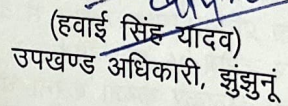 (हवाई सिंह यादव)
उपखण्ड अधिकारी, झुंझुनूं